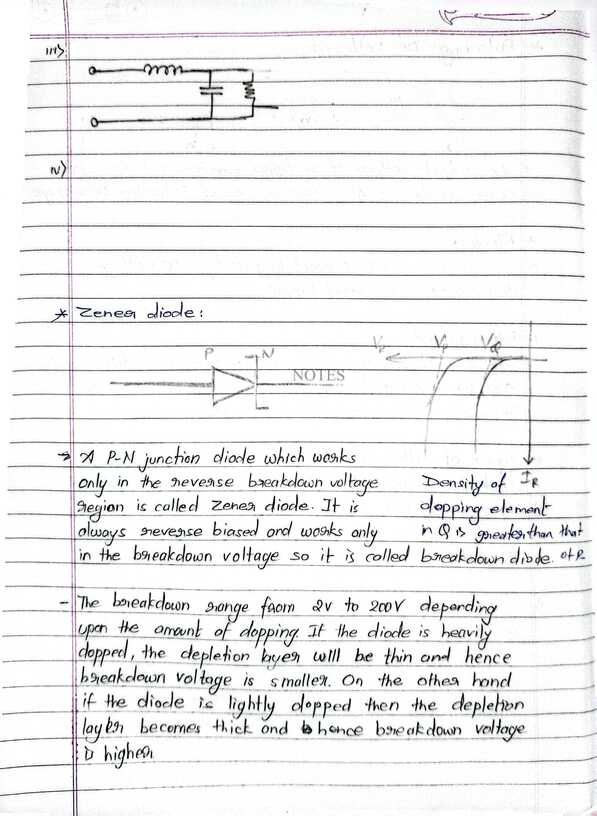 iii)
iv)
* Zener diode:
P N
NOTES
Vr Vp VQ
IR
→ A P-N junction diode which works
only in the reverse breakdown voltage
region is called zener diode. It is
always reverse biased and works only
in the breakdown voltage so it is called breakdown diode.
Density of
dopping element
in Q is greater than that
of P
- The breakdown range from 2V to 200V depending
upon the amount of dopping. If the diode is heavily
dopped, the depletion layer will be thin and hence
breakdown voltage is smaller. On the other hand
if the diode is lightly dopped then the depletion
layer becomes thick and hence breakdown voltage
is higher